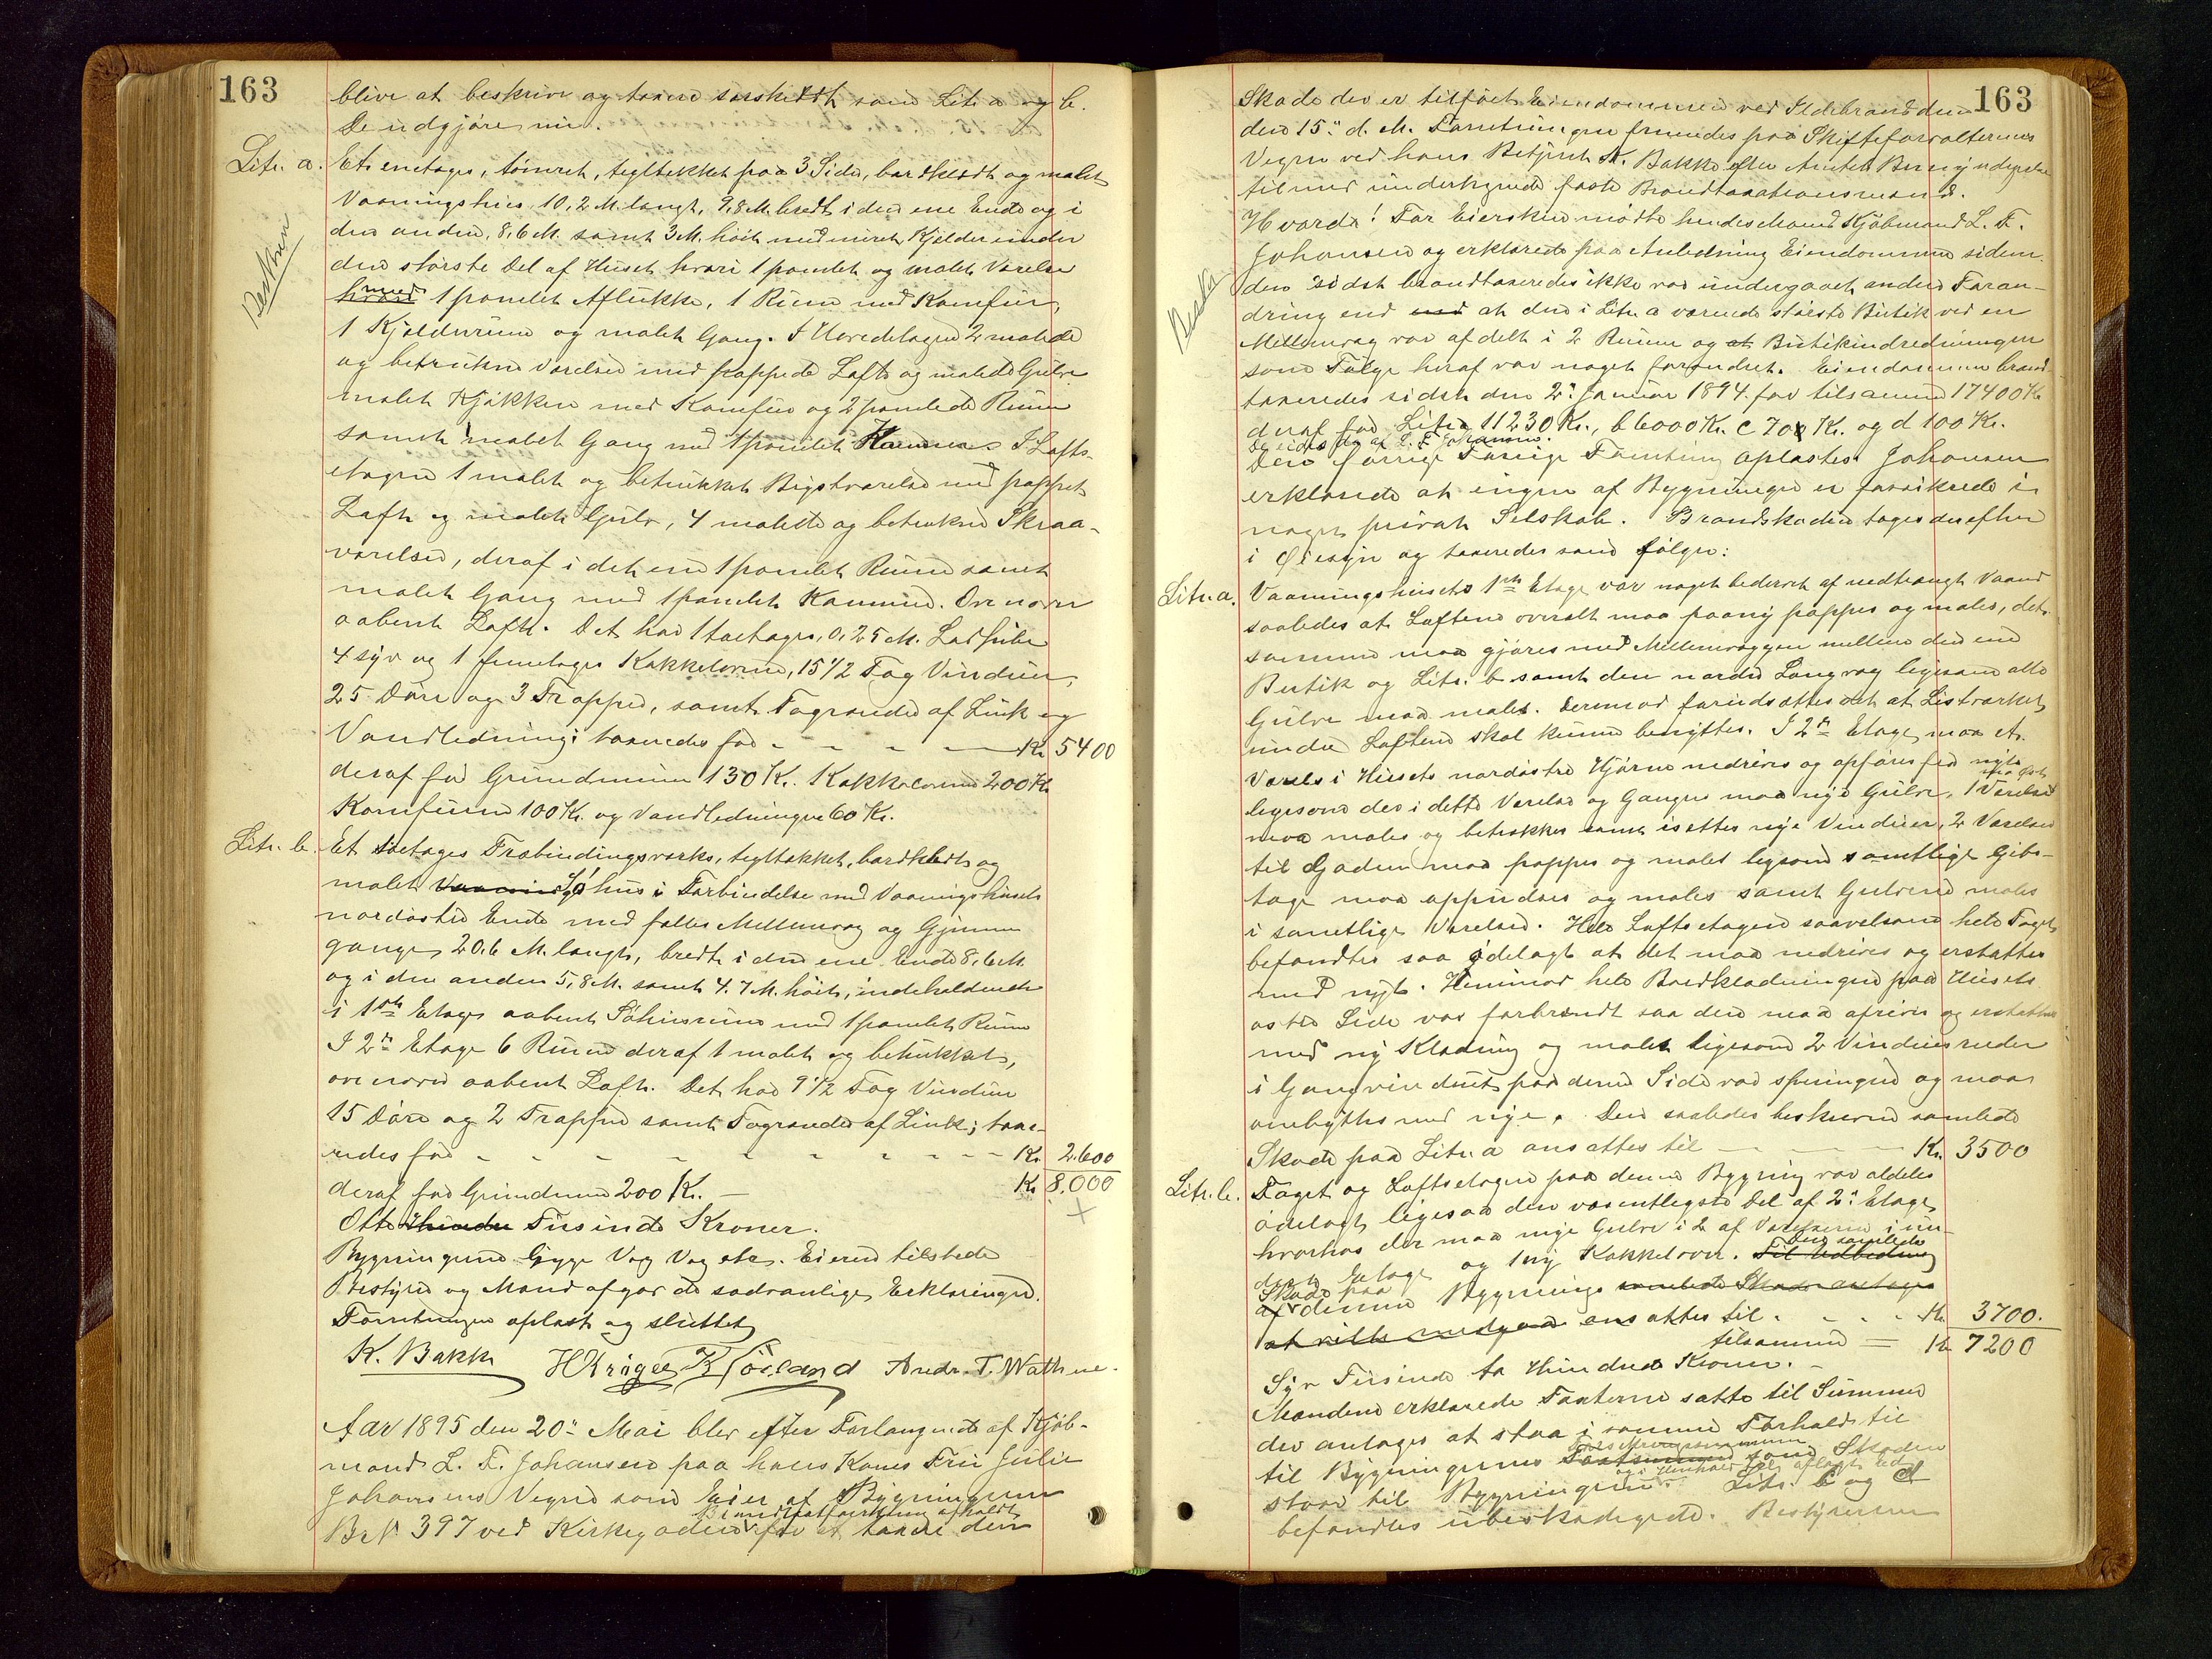 163
blive at beskrive og taxere særskildt som Litr. a og b.
De udgjøre nu.
Litr. a. Et enetages, tømret, tegltækket paa 3 Sider, bordklædt og malet
Vaaningshus 10,2 M. langt, 9,8 M. bredt i den ene Ende og i
den anden, 8,6 M. samt 3 M. høit med muret Kjelder under
den største Del af Huset hvori 1 panelet og malet Værelse
med 1 panelet Aflukke, 1 Rum med Komfur,
1 Kjelderrum og malet Gang. I Hovedetagen 2 malede
og betrukne Værelser med pappede Lofte og malede Gulve
malet Kjøkken med Komfur og 2 panelede Rum
samt malet Gang med 1 panelet Kammer. I Lofts-
etagen 1 malet og betrukket Kvistværelse med pappet
Loft og malet Gulv, 4 malede og betrukne Skraa-
værelser, deraf i det ene 1 panelet Rum samt
malet Gang med 1 panelet Kammer. Ovenover
aabent Loft. Det har 1 toetages, 0,25 M. Ladpibe
4 syv og 1 femetages Kakkelovne, 15 1/2 Fag Vinduer,
25 Døre og 3 Trapper, samt Tagrender af Zink og
Vandledning; taxeredes for - - - - Kr. 5400
deraf for Grundmuren 130 Kr. Kakkelovne 200 Kr.
Komfurene 100 Kr. og Vandledningen 60 Kr.
Litr. b. Et toetages Træbindingsværks, tegltækket, bordklædt og
malet Søhus i Forbindelse med Vaaningshusets
nordøstre Ende med fælles Mellemvæg og Gjennem
gange, 20,6 M. langt, bredt i den ene Ende 8,6 M.
og i den anden 5,8 M. samt 4,7 M. høit, indeholdende
i 1ste Etage aabent Søhusrum med 1 panelet Rum
I 2den Etage 6 Rum deraf 1 malet og betrukket,
ovenover aabent Loft. Det har 9 1/2 Fag Vinduer
15 Døre og 2 Trapper samt Tagrender af Zink; taxe-
redes for - - - - - - Kr. 2.600
deraf for Grundmur 200 Kr. — Kr. 8,000
Otte Tusinde Kroner.
Bygningerne ligge Væg Væg etc. Eieren tilstede
Bestyrer og Mænd afgav de sædvanlige Erklæringer.
Forretningen oplæst og sluttet
K. Bakke H Krøger Andr. T. Wathne.
Aar 1895 den 20de Mai blev efter Forlangende af Kjøb-
mand L. F. Johansen paa hans Kones Fru Julie
Johansens Vegne som Eier af Bygningerne
Br.№ 397 ved Kirkegaden Brandtaxtforretning afholdt for at taxere den
163
Skade der er tilføiet Eiendommen ved Ildebrand den
den 15de d. M. Forretningen fremmedes paa Skifteforvalterens
Vegne ved hans Betjent K. Bakke efter Amtets Bemyndigelse
tilmed undertegnede faste Brandtaxationsmænd.
Hvorda! For Eiersken mødte hendes Mand Kjøbmand L. F.
Johansen og erklærede paa Anledning Eiendommen siden
den sidst brandtaxeredes ikke var undergaaet anden Foran-
dring end at den i Litr. a værende største Butik ved en
Mellemvæg var afdelt i 2 Rum og Butikindredningen
som Følge heraf var noget forandret. Eiendommen brand-
taxeredes sidst den 2den Januar 1894 for tilsammen 17400 Kr.
deraf for Litr. a 11230 Kr., b 6000 Kr. c 70 Kr. og d 100 Kr.
og eides da af L. F. Johansen.
Den forrige Forretning oplæstes. Johansen
erklærede at ingen af Bygningerne er forsikrede i
noget privat Selskab. Brandskaden toges derefter
i Øiesyn og taxeredes som følger:
Litr. a. Vaaningshusets 1ste Etage var noget bedervet af nedtrængt Vand
saaledes at Loftene overalt maa paany pappes og males, det
samme maa gjøres med Mellemvæggen mellem den ene
Butik og Litr. b samt den nordre Langvæg ligesom alle
Gulve maa males. Derimod forudsættes det at Listværket
under Loftene skal kunne benyttes. I 2den Etage maa et
Værelse i Husets nordøstre Hjørne nedrives og opføres fra nyt
ligesom der i dette Værelse og Gangen maa nye Gulve, 1 Værelse
maa males og betrækkes samt isættes nye Vinduer, 2 Værelser
til Gaden maa pappes og males ligesom samtlige Gibs-
tage maa oppudses og males samt Gulvene males
i samtlige Værelser. Hele Loftsetagen saavelsom hele Taget
befandtes saa ødelagt at det maa nedrives og erstattes
med nyt. Hele Bordklædningen paa Husets
østre Side var forbrændt saa den maa afrives og erstattes
med ny Klædning og males ligesom 2 Vinduesruder
i Gangvinduet paa denne Side var sprungne og maa
ombyttes med nye. Den saaledes beskrevne samlede
Skade paa Litr. a ansættes til - - - Kr. 3500
Litr. b. Taget og Loftsetagen paa denne Bygning var aldeles
ødelagt, ligesaa den væsentligste Del af 2den Etage,
hvorhos der maa nye Gulve i 2 af Værelserne i
Etage og 1 ny Kakkelovn. Den samlede
Skade paa denne Bygning ansættes til - - - Kr. 3700.
tilsammen = Kr 7200
Syv Tusinde to Hundrede Kroner. -
Mændene erklærede Taxterne satte til Summer
der antages at staa i samme Forhold til
til Bygningernes som Skaden
staar til Bygningerne. Litr. c og d
befandtes ubeskadigede. Bestyreren